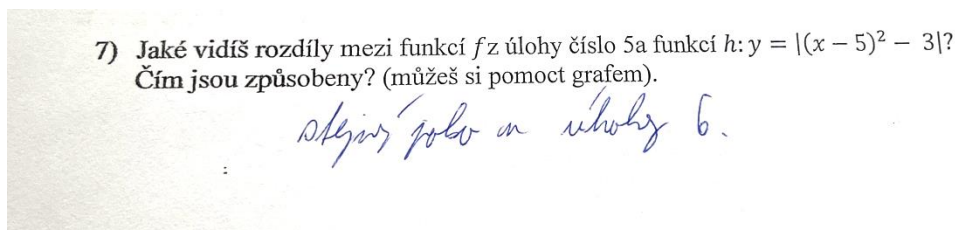 7) Jaké vidíš rozdíly mezi funkcí f z úlohy číslo 5a funkcí h: y = |(x – 5)² – 3|?
Čím jsou způsobeny? (můžeš si pomoct grafem).
stejný jako u úlohy 6.